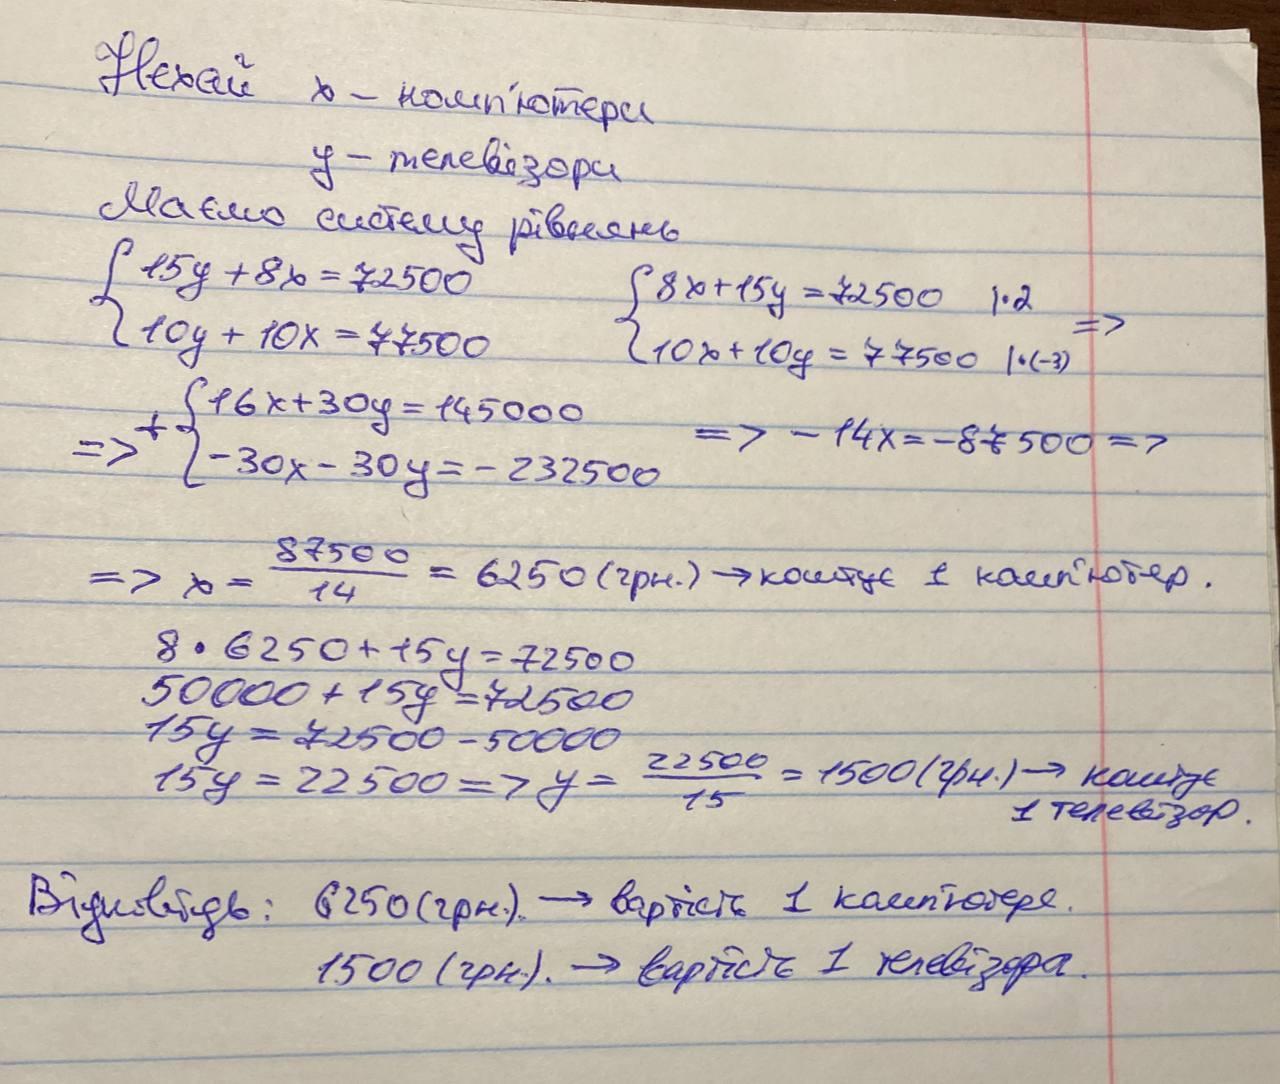 Нехай х – комп'ютери
у – телевізори
Маємо систему рівнянь
{ 15y + 8x = 72500
{ 10y + 10x = 77500
{ 8x + 15y = 72500 |·2
{ 10x + 10y = 77500 |·(-3) =>
=> + { 16x + 30y = 145000
{ -30x - 30y = - 232500
=> - 14x = - 87500 =>
=> x = 87500/14 = 6250 (грн.) → коштує 1 комп'ютер.
8 · 6250 + 15y = 72500
50000 + 15y = 72500
15y = 72500 - 50000
15y = 22500 => y = 22500/15 = 1500 (грн.) → коштує
1 телевізор.
Відповідь: 6250 (грн.). → вартість 1 комп'ютера.
1500 (грн.). → вартість 1 телевізора.